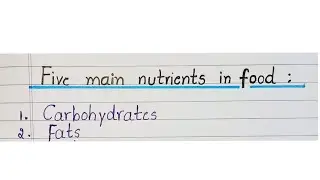 Five main nutrients in food :
1. Carbohydrates
2. Fats